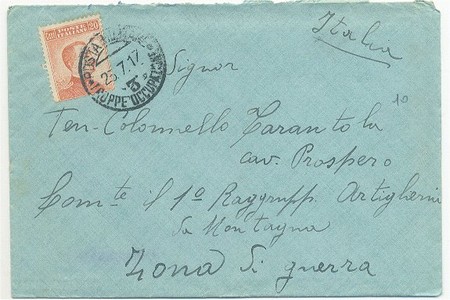 Italia
POSTA MILITARE
25.7.17.
3
TRUPPE OCCUPAZIONE
20
20
10
Signor
Ten-Colonnello Tarantola
cav. Prospero
Com.te il 1º Raggrupp. Artiglieria
da Montagna
Zona di guerra